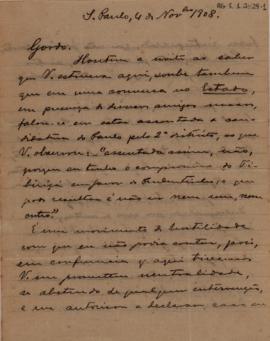 S. Paulo, 4 de Novbro 1908.
Gordo.
Hontem a noite ao saber
que V. estivera aqui, soube tambem
que em uma conversa no Estado,
em presença de diversos amigos nossos,
falou-se em estar assentada a can
didatura do Paulo pelo 2º districto, ao que
V. observou: "assentada assim, não,
porque eu tenho o compromisso do Ti-
biriçá em favor do Prudentinho, e o que
pode resultar é não ir nem um, nem
outro."
É um movimento de hostilidade
com que eu não podia contar, pois,
em conferencia q. aqui tivemos
V. me prometteu neutralidade,
se abstendo de qualquer intervenção,
e me autorisou a declarar, caso